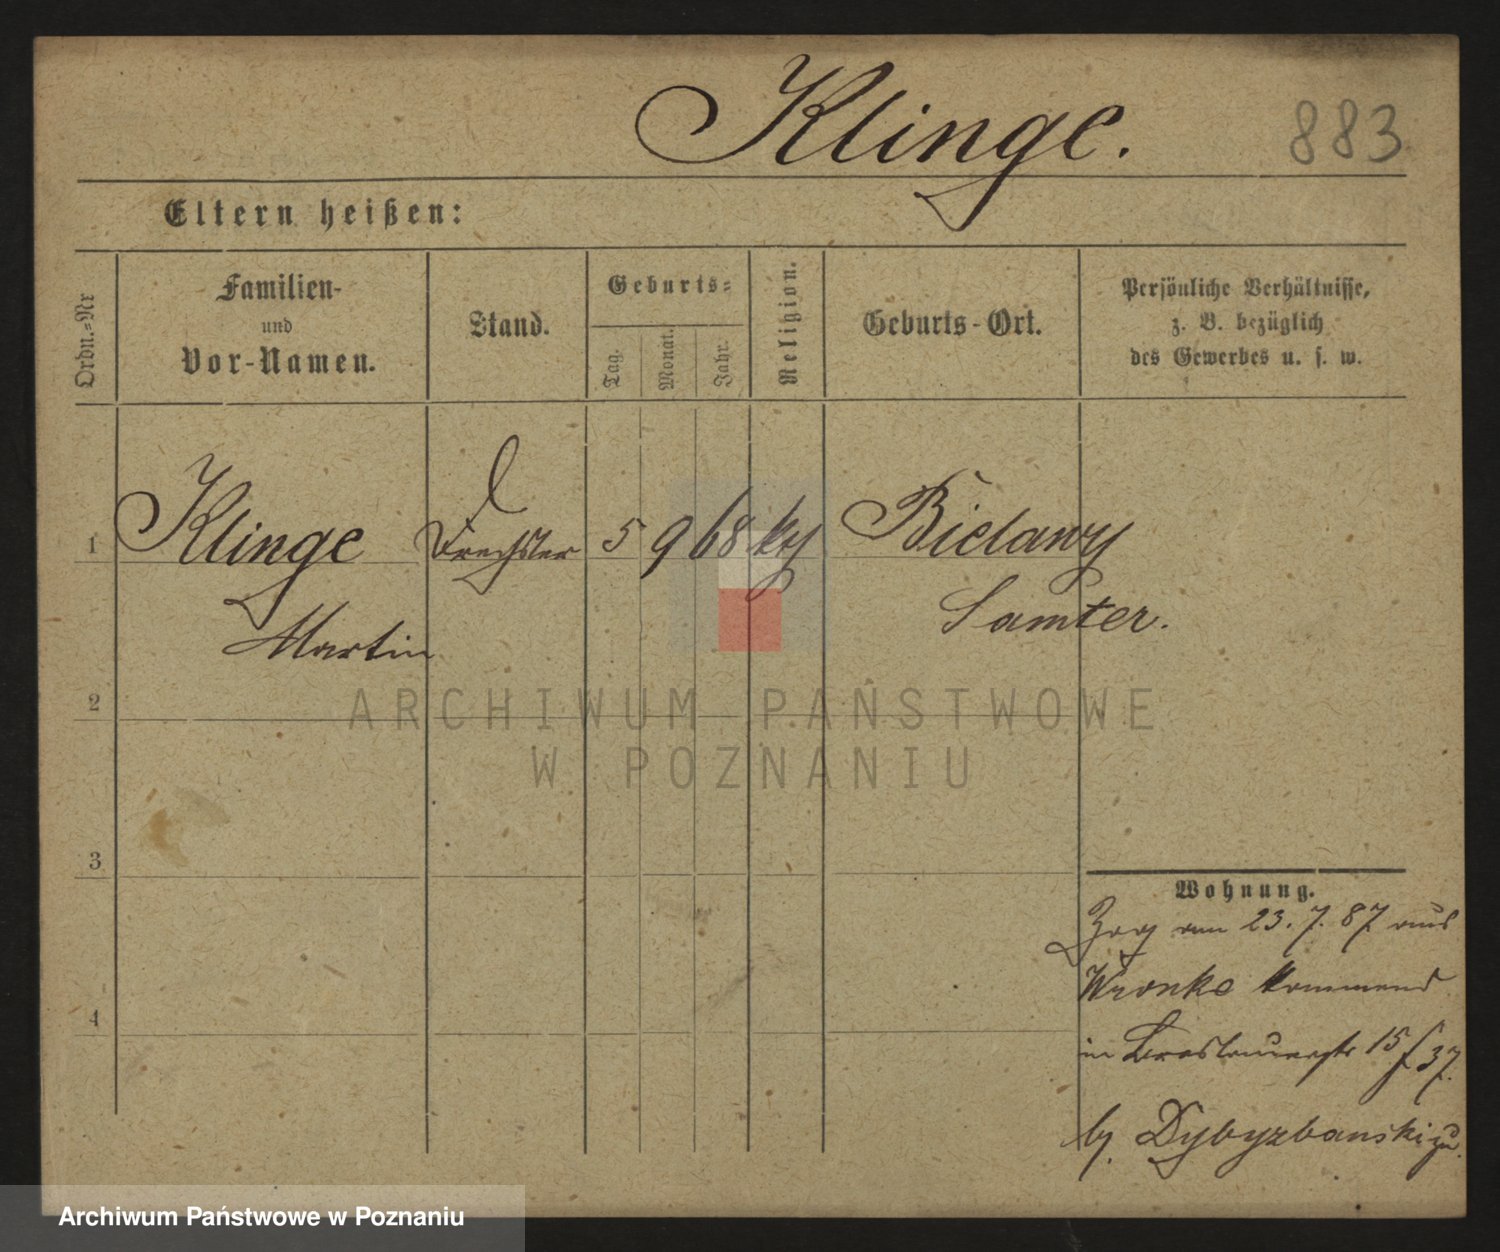 Klinge.
883
Eltern heißen:
Ordn.=Nr
Familien-
und
Vor-Namen.
Stand.
Geburts=
Tag.
Monat.
Jahr.
Religion.
Geburts-Ort.
Persönliche Verhältnisse,
z. B. bezüglich
des Gewerbes u. s. w.
1 Klinge Drechsler 5 9 68 ky Bielawy
Martin Samter.
2
3
4
Wohnung.
Zog am 23. 7. 87 aus
Wronke kommend
in Breslauerstr 15 f 37.
bj. Dybyzbanski zu.
ARCHIWUM PAŃSTWOWE
W POZNANIU
Archiwum Państwowe w Poznaniu